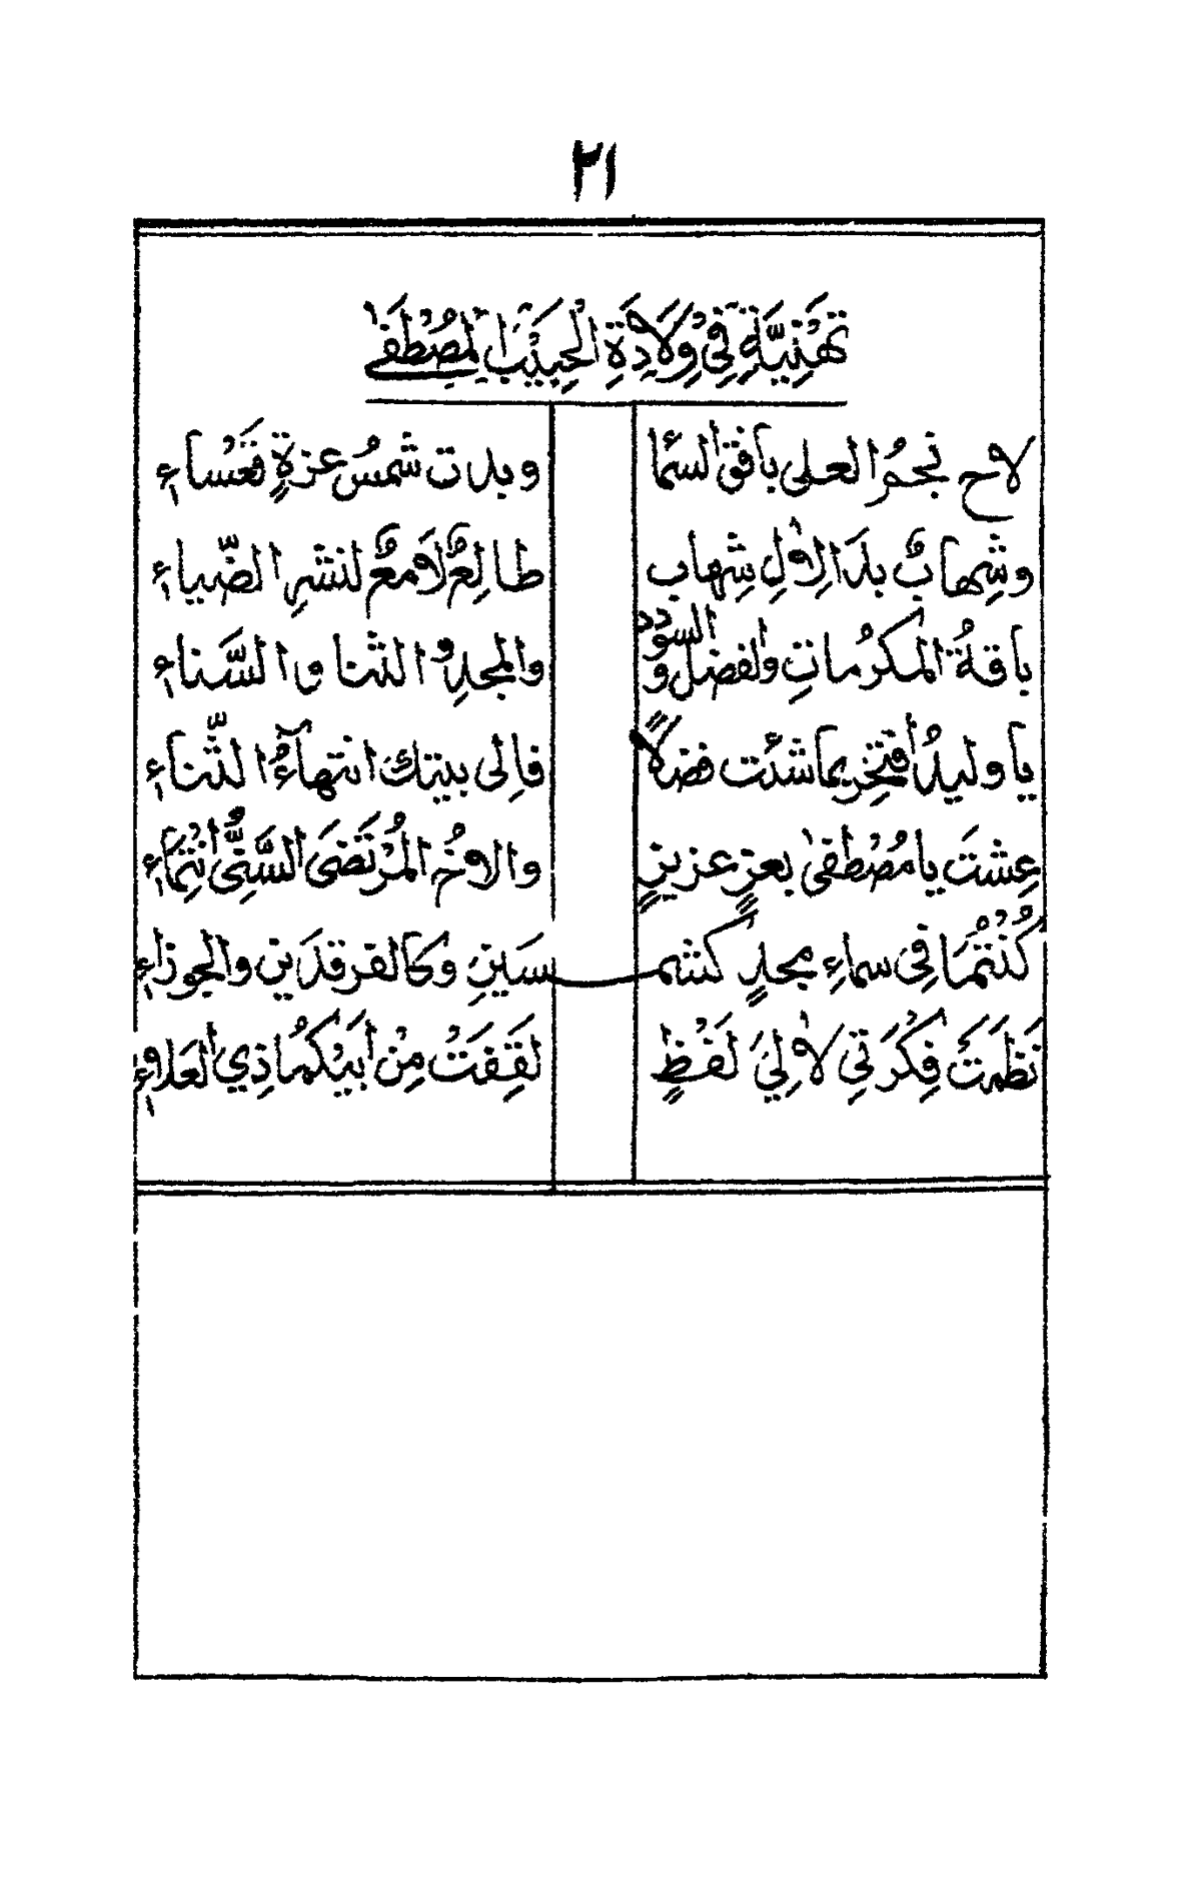 ٢١
تَهْنِيَّةٍ فِيْ وِلَادَةِ الْحَبِيْبِ الْمُصْطَفٰى
لاح نجمُ العلى بافق السمآ وبدت شمسُ عزةٍ قَعْساءِ
وشِهابٌ بدَا لِاوْلِ شِهابٍ طالِعٌ لامعٌ لنشرِ الضِّياءِ
باقةُ المكرُماتِ والفضل والسودد والمجدِ والثنا والسَّناءِ
يا وليدُ افتخر بما شئت فضلاً فالى بيتك انتهآءُ الثَّناءِ
عِشتَ يا مُصْطفىٰ بعزٍ عزيزٍ والاخُ المُرْتَضَى السَّنِيُّ انْتِمَاءِ
كُنْتُمَا فِي سماءِ مجدٍ كشمسَينِ وكالفرقدَينِ والجوزاءِ
نَظَمَتْ فِكْرَتِي لاٰلِيَ لَفْظٍ لَقِفَتْ مِنْ اَبَيْكُمَا ذِي العَلاءِ